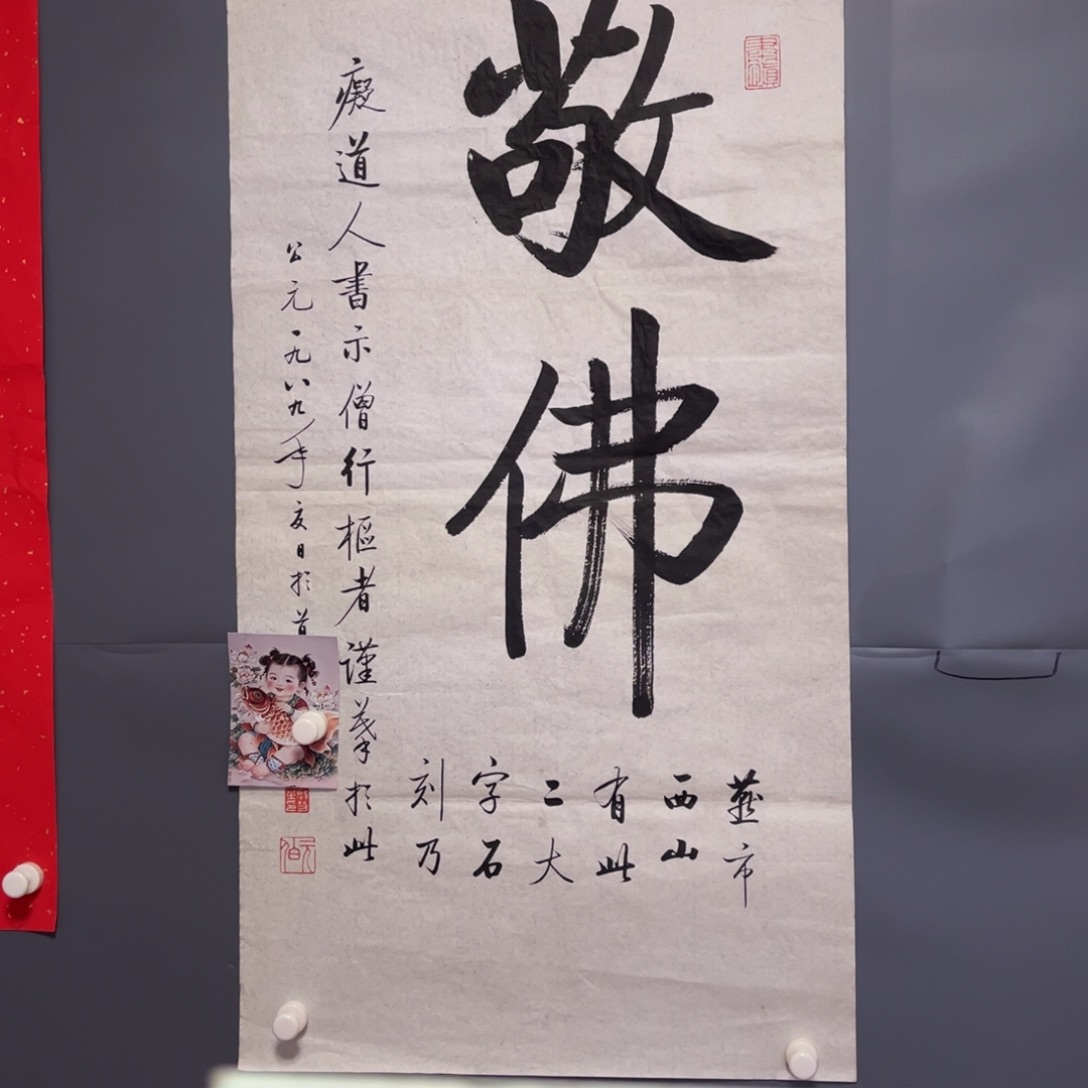 敬佛
燕市
西山
有此
二大
字石
刻乃
癡道人書示僧行樞者謹摹於此
公元一九八九年夏日於